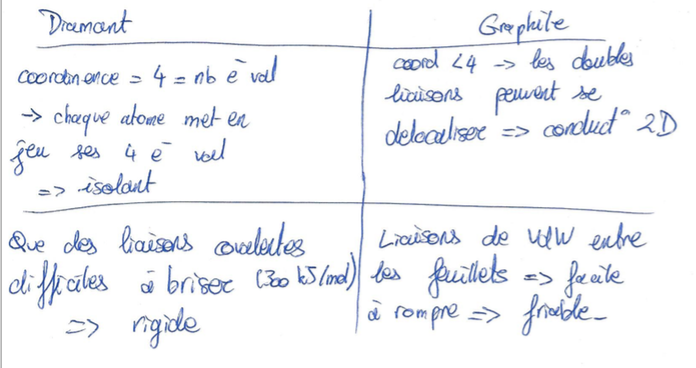 Diamant
coordinence = 4 = nb e⁻ val
-> chaque atome met en
jeu ses 4 e⁻ val
=> isolant
Graphite
coord < 4 -> les doubles
liaisons peuvent se
delocaliser => conduct° 2D
Que des liaisons covalentes
difficiles à briser (300 kJ/mol)
=> rigide
Liaisons de VdW entre
les feuillets => facile
à rompre => friable_